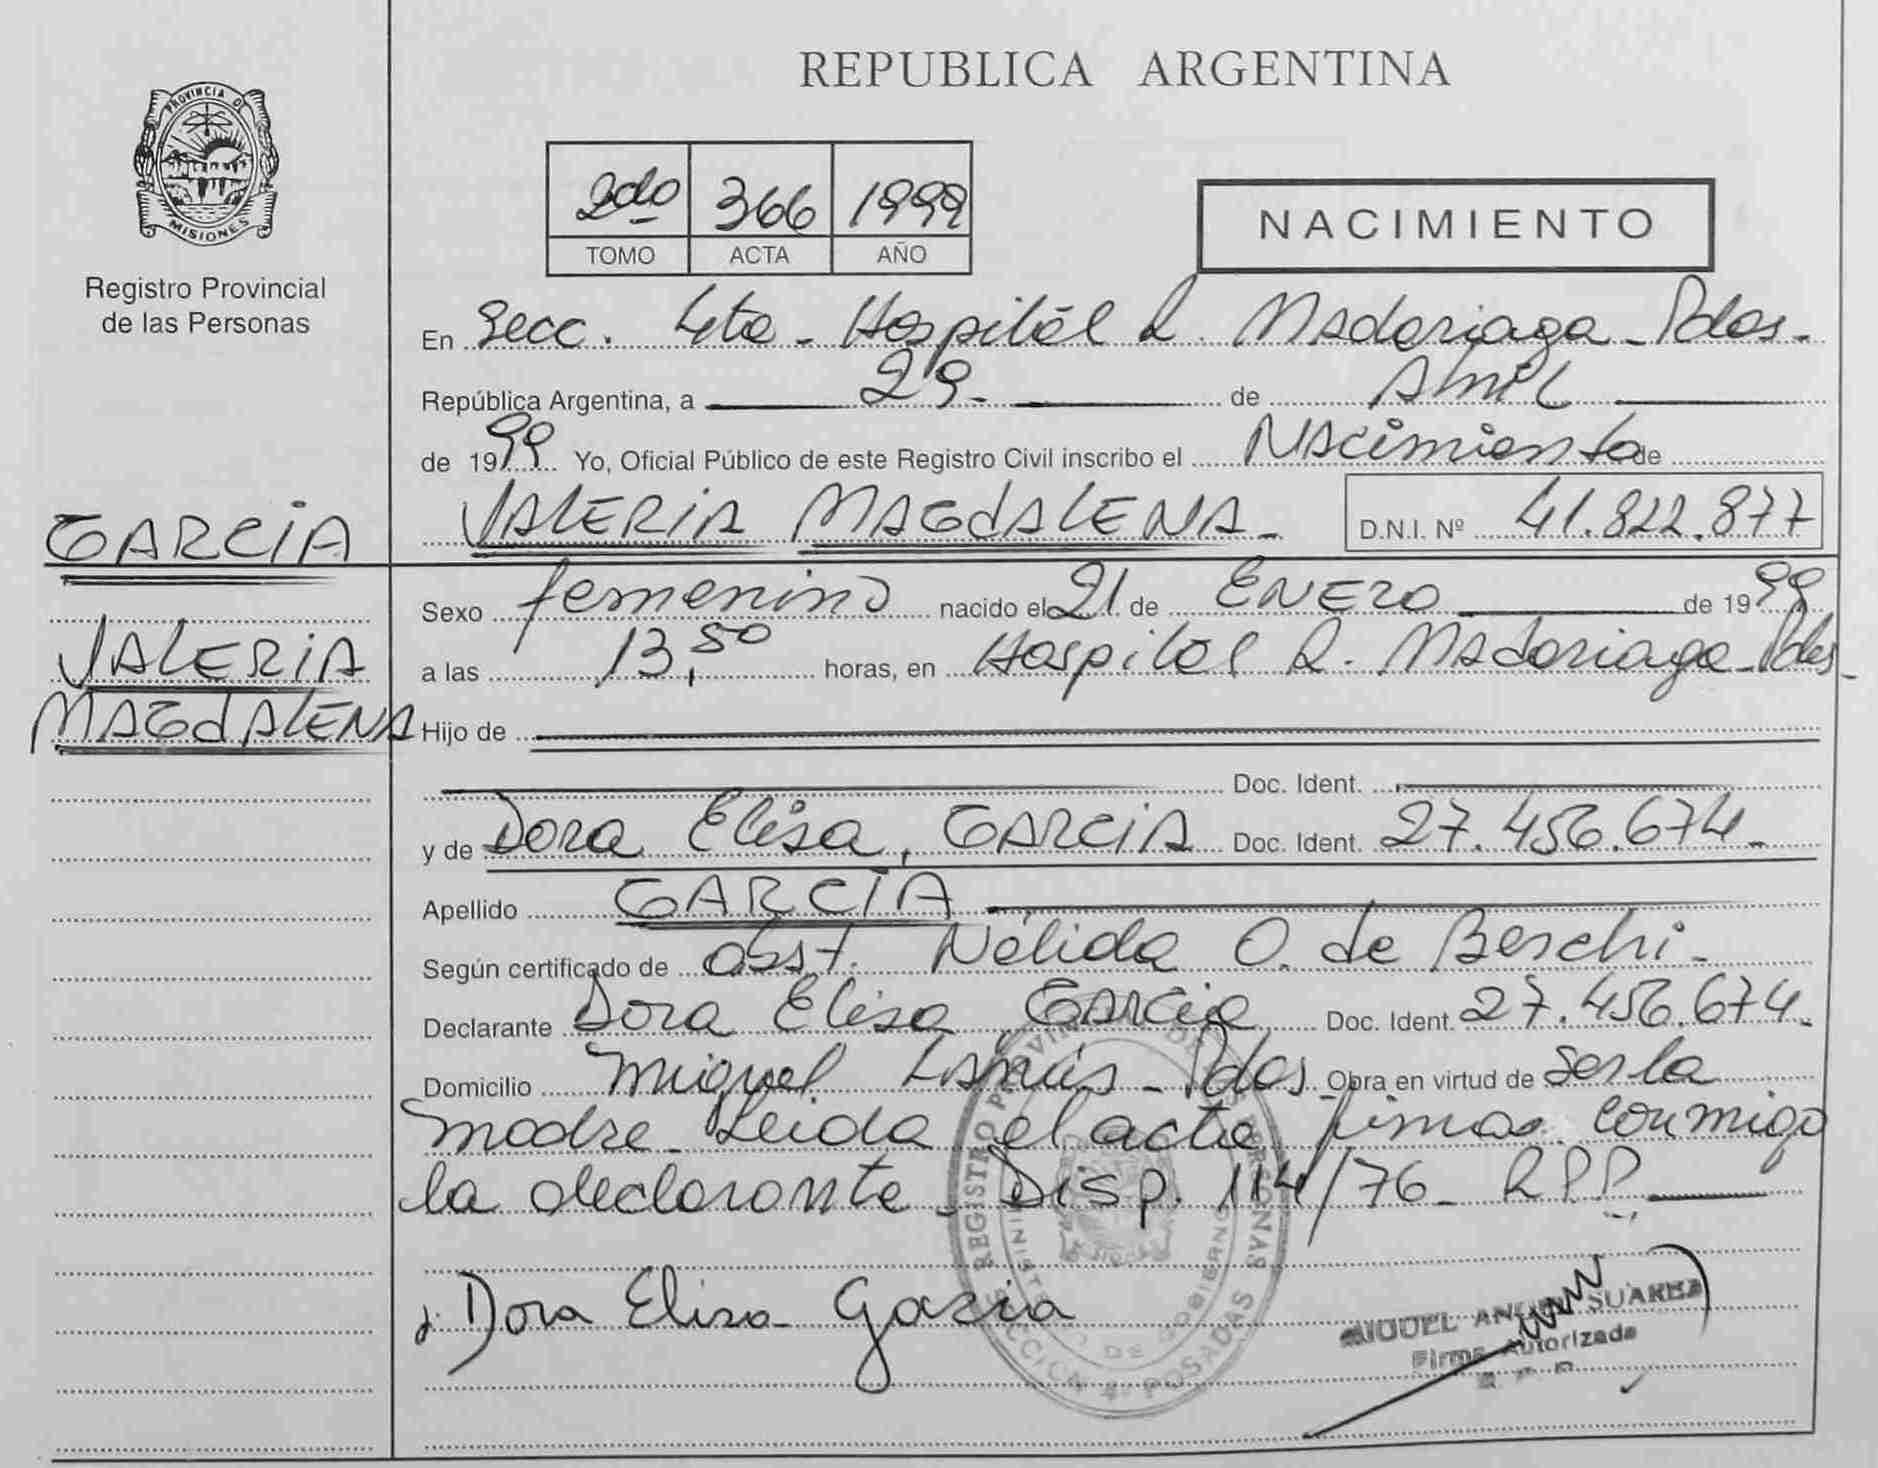 REPUBLICA ARGENTINA
PROVINCIA DE
MISIONES
Registro Provincial
de las Personas
2do 366 1999
TOMO ACTA AÑO
NACIMIENTO
En Secc. 4ta - Hospital R. Madariaga - Pdas.
República Argentina, a 29 de Abril
de 1999 Yo, Oficial Público de este Registro Civil inscribo el Nacimiento de
VALERIA MAGdALENA - D.N.I. Nº 41.822.877
GARCIA
VALERIA
MAGdALENA
Sexo femenino nacido el 21 de ENERO de 1999
a las 13,50 horas, en Hospital R. Madariaga - Pdas -
Hijo de
Doc. Ident.
y de Dora Elisa, GARCIA Doc. Ident. 27.456.674 -
Apellido GARCIA
Según certificado de obst. Nélida O. de Beschi -
Declarante Dora Elisa Garcia Doc. Ident. 27.456.674 -
Domicilio Miguel Lanús - Pdas. Obra en virtud de ser la
madre - Leida el acta firma conmigo
la declarante - Disp. 114/76 - RPP
Dora Elisa Garcia
REGISTRO PROVINCIAL DE LAS PERSONAS
MINISTERIO DE GOBIERNO
SECCION 4ª POSADAS
MIGUEL ANGEL SUAREZ
Firma Autorizada